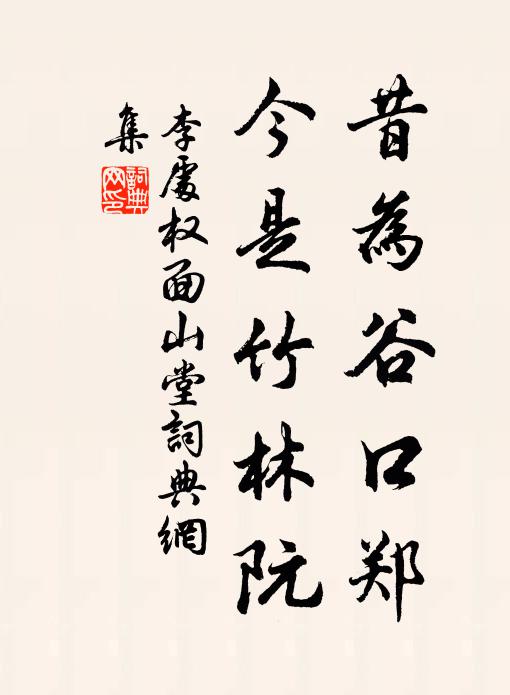 昔為谷口郑
今是竹林阮
李處权面山堂詞典網
集
詞典
网印